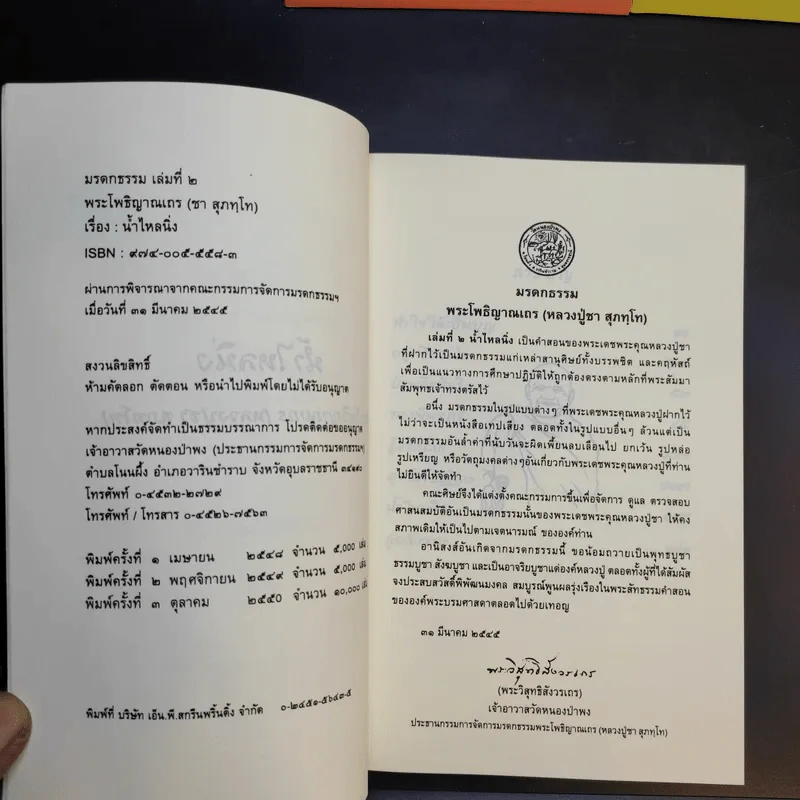 มรดกธรรม เล่มที่ ๒
พระโพธิญาณเถร (ชา สุภทฺโท)
เรื่อง : น้ำไหลนิ่ง
ISBN : ๙๗๔-๐๐๕-๕๕๘-๓
ผ่านการพิจารณาจากคณะกรรมการจัดการมรดกธรรมฯ
เมื่อวันที่ ๓๑ มีนาคม ๒๕๔๕
สงวนลิขสิทธิ์
ห้ามคัดลอก ตัดตอน หรือนำไปพิมพ์โดยไม่ได้รับอนุญาต
หากประสงค์จัดทำเป็นธรรมบรรณาการ โปรดติดต่อขออนุญาต
เจ้าอาวาสวัดหนองป่าพง (ประธานกรรมการจัดการมรดกธรรมฯ)
ตำบลโนนผึ้ง อำเภอวารินชำราบ จังหวัดอุบลราชธานี ๓๔๑๙๐
โทรศัพท์ ๐-๔๕๓๒-๒๗๒๙
โทรศัพท์ / โทรสาร ๐-๔๕๒๖-๗๕๖๓
พิมพ์ครั้งที่ ๑ เมษายน ๒๕๔๘ จำนวน ๕,๐๐๐ เล่ม
พิมพ์ครั้งที่ ๒ พฤศจิกายน ๒๕๔๙ จำนวน ๕,๐๐๐ เล่ม
พิมพ์ครั้งที่ ๓ ตุลาคม ๒๕๕๐ จำนวน ๑๐,๐๐๐ เล่ม
พิมพ์ที่ บริษัท เอ็น.พี.สกรีนพริ้นติ้ง จำกัด ๐-๒๔๕๑-๕๖๔๓-๕
มรดกธรรม
พระโพธิญาณเถร (หลวงปู่ชา สุภทฺโท)
เล่มที่ ๒ น้ำไหลนิ่ง เป็นคำสอนของพระเดชพระคุณหลวงปู่ชา
ที่ฝากไว้เป็นมรดกธรรมแก่เหล่าสานุศิษย์ทั้งบรรพชิต และคฤหัสถ์
เพื่อเป็นแนวทางการศึกษาปฏิบัติให้ถูกต้องตรงตามหลักที่พระสัมมา
สัมพุทธเจ้าทรงตรัสไว้
อนึ่ง มรดกธรรมในรูปแบบต่างๆ ที่พระเดชพระคุณหลวงปู่ฝากไว้
ไม่ว่าจะเป็นหนังสือเทปเสียง ตลอดทั้งในรูปแบบอื่นๆ ล้วนแต่เป็น
มรดกธรรมอันล้ำค่าที่นับวันจะผิดเพี้ยนลบเลือนไป ยกเว้น รูปหล่อ
รูปเหรียญ หรือวัตถุมงคลต่างๆอันเกี่ยวกับพระเดชพระคุณหลวงปู่ที่ท่าน
ไม่ยินดีให้จัดทำ
คณะศิษย์จึงได้แต่งตั้งคณะกรรมการขึ้นเพื่อจัดการ ดูแล ตรวจสอบ
ศาสนสมบัติอันเป็นมรดกธรรมนั้นของพระเดชพระคุณหลวงปู่ชา ให้คง
สภาพเดิมให้เป็นไปตามเจตนารมณ์ ขององค์ท่าน
อานิสงส์อันเกิดจากมรดกธรรมนี้ ขอน้อมถวายเป็นพุทธบูชา
ธรรมบูชา สังฆบูชา และเป็นอาจริยบูชาแด่องค์หลวงปู่ ตลอดทั้งผู้ที่ได้สัมผัส
จงประสบสวัสดิ์พิพัฒนมงคล สมบูรณ์พูนผลรุ่งเรืองในพระสัทธรรมคำสอน
ขององค์พระบรมศาสดาตลอดไปด้วยเทอญ
๓๑ มีนาคม ๒๕๔๕
พระวิสุทธิสังวรเถร
(พระวิสุทธิสังวรเถร)
เจ้าอาวาสวัดหนองป่าพง
ประธานกรรมการจัดการมรดกธรรมพระโพธิญาณเถร (หลวงปู่ชา สุภทฺโท)